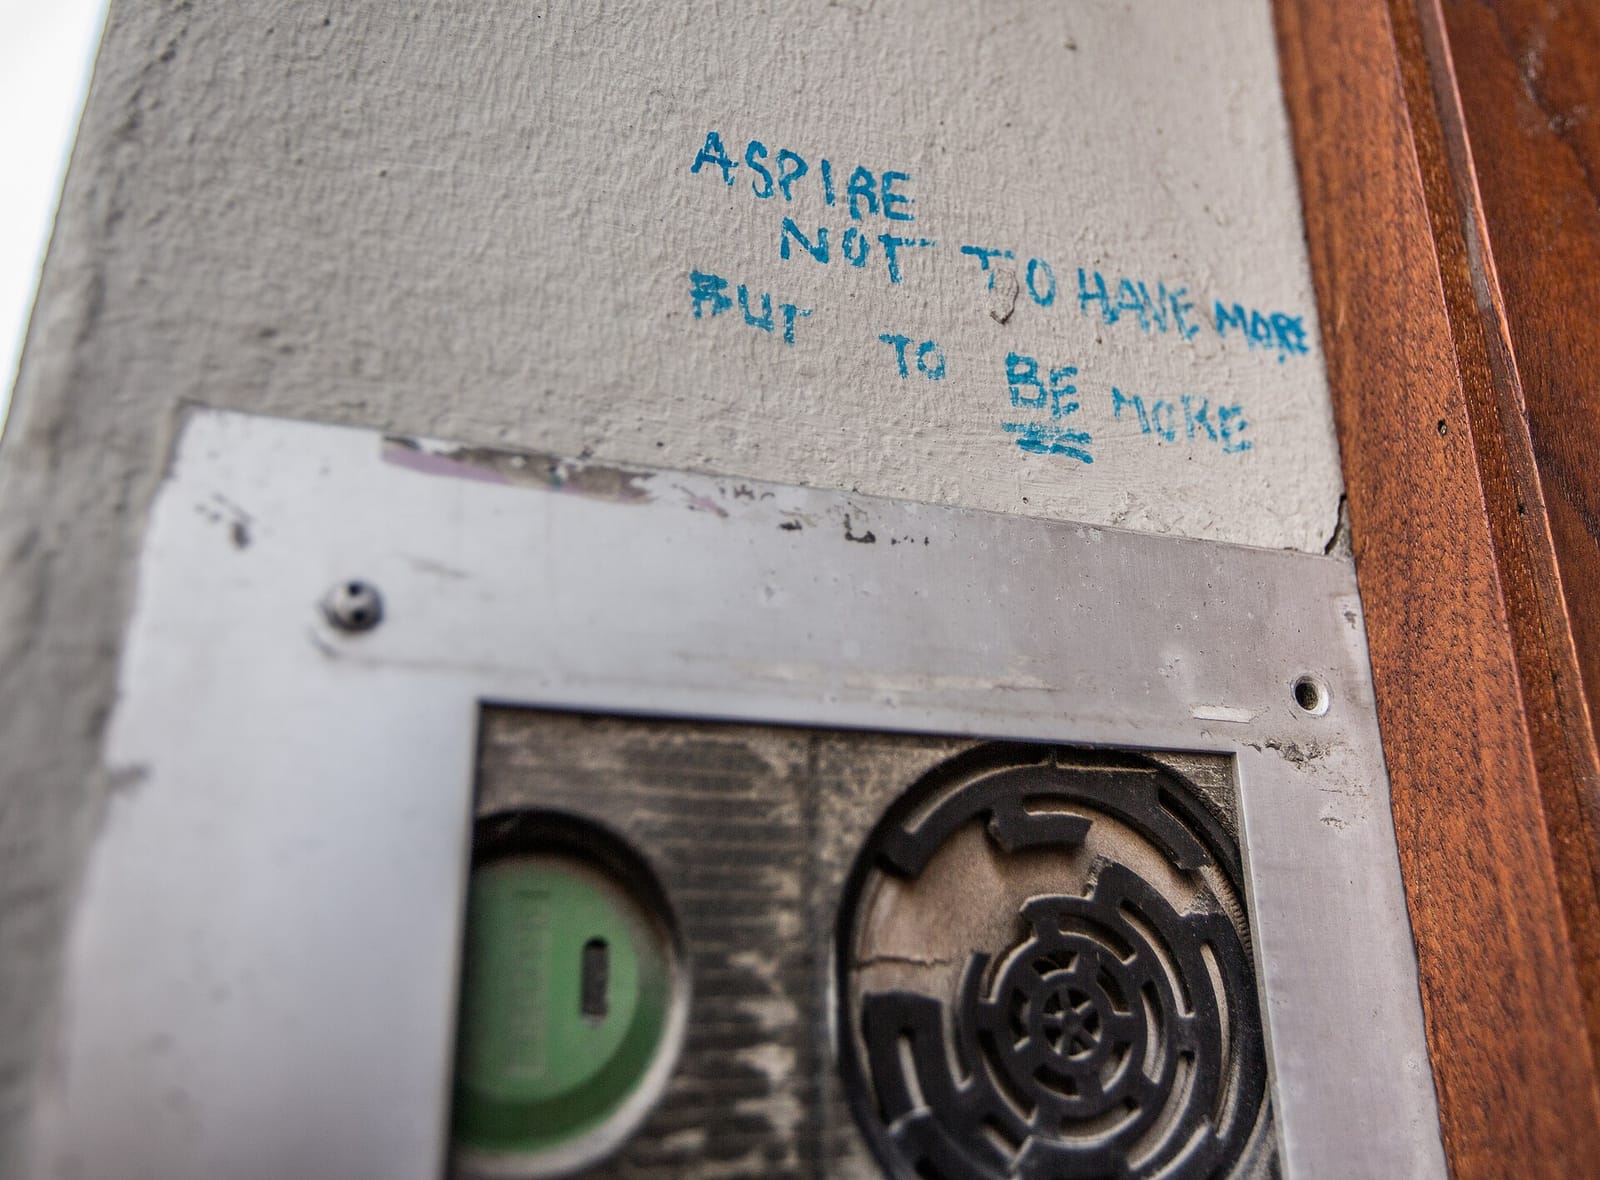 ASPIRE
NOT TO HAVE MORE
BUT TO BE MORE